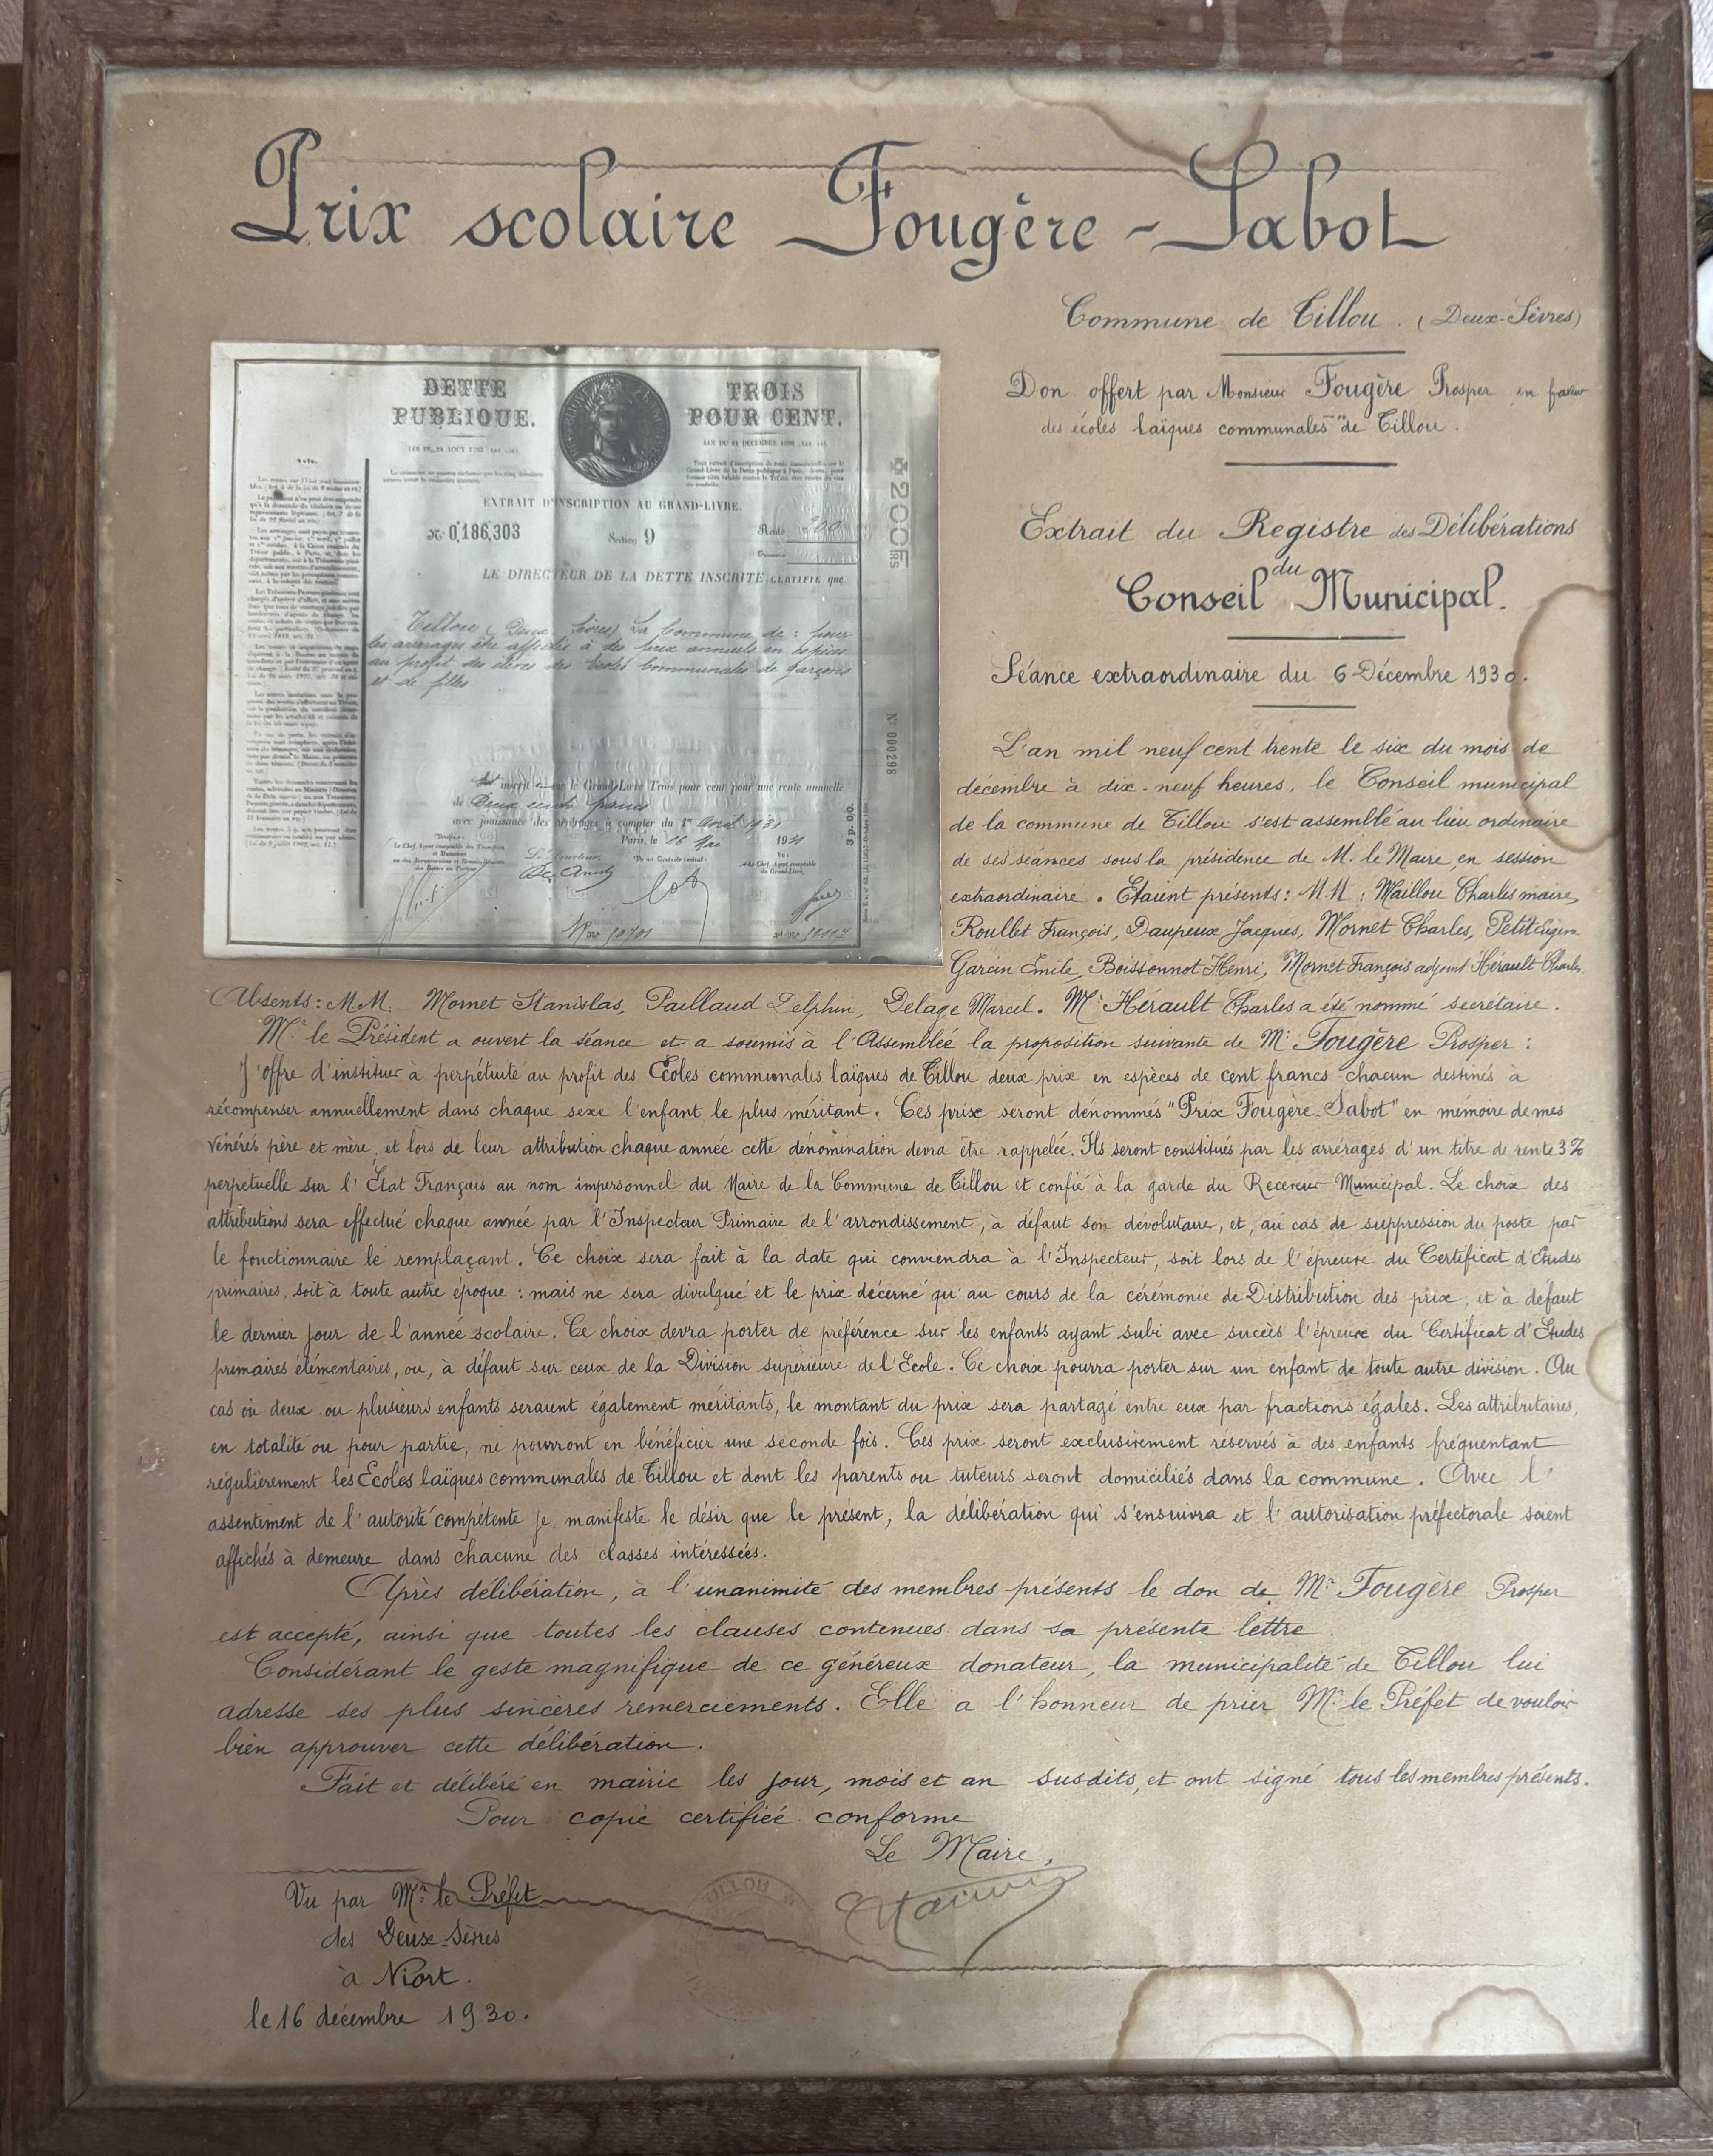 Prix scolaire Fougère-Sabot
Commune de Tillou. (Deux-Sèvres)
Don offert par Monsieur Fougère Prosper en faveur
des écoles laïques communales de Tillou.
Extrait du Registre des Délibérations
du
Conseil Municipal.
Séance extraordinaire du 6 Décembre 1930.
DETTE
PUBLIQUE.
TROIS
POUR CENT.
EXTRAIT D'INSCRIPTION AU GRAND-LIVRE.
N° 0,186,303
Section 9
Rente 200
LE DIRECTEUR DE LA DETTE INSCRITE CERTIFIE que
Tillou (Deux Sèvres) La Commune de : pour
les arrérages être affectés à des prix annuels en espèces
au profit des élèves des Ecoles Communales de garçons
et de filles
Est inscrit sur le Grand-Livre Trois pour cent pour une rente annuelle
de Deux cents francs
avec jouissance des arrérages à compter du 1er Avril 1931
Paris, le 16 Mai 1931
200F
N° 000298
3 p. 0/0.
L'an mil neuf cent trente le six du mois de
décembre à dix-neuf heures, le Conseil municipal
de la commune de Tillou s'est assemblé au lieu ordinaire
de ses séances sous la présidence de M. le Maire, en session
extraordinaire. Etaient présents: M.M: Maillou Charles maire,
Roullet François, Daupeux Jacques, Mornet Charles, Petit Eugène
Garcin Emile, Boissonnot Henri, Mornet François adjoint Hérault Charles.
Absents: M.M. Mornet Stanislas, Paillaud Delphin, Delage Marcel. Mr Hérault Charles a été nommé secrétaire.
Mr le Président a ouvert la séance et a soumis à l'Assemblée la proposition suivante de Mr Fougère Prosper :
J'offre d'instituer à perpétuité au profit des Ecoles communales laïques de Tillou deux prix en espèces de cent francs chacun destinés à
récompenser annuellement dans chaque sexe l'enfant le plus méritant. Ces prix seront dénommés "Prix Fougère-Sabot" en mémoire de mes
vénérés père et mère, et lors de leur attribution chaque année cette dénomination devra être rappelée. Ils seront constitués par les arrérages d'un titre de rente 3%
perpétuelle sur l'État Français au nom impersonnel du Maire de la Commune de Tillou et confié à la garde du Receveur Municipal. Le choix des
attributions sera effectué chaque année par l'Inspecteur Primaire de l'arrondissement, à défaut son dévolutaire, et, au cas de suppression du poste par
le fonctionnaire le remplaçant. Ce choix sera fait à la date qui conviendra à l'Inspecteur, soit lors de l'épreuve du Certificat d'Etudes
primaires, soit à toute autre époque : mais ne sera divulgué et le prix décerné qu'au cours de la cérémonie de Distribution des prix, et à défaut
le dernier jour de l'année scolaire. Ce choix devra porter de préférence sur les enfants ayant subi avec succès l'épreuve du Certificat d'Etudes
primaires élémentaires, ou, à défaut sur ceux de la Division supérieure de l'Ecole. Ce choix pourra porter sur un enfant de toute autre division. Au
cas où deux ou plusieurs enfants seraient également méritants, le montant du prix sera partagé entre eux par fractions égales. Les attributaires,
en totalité ou pour partie, ne pourront en bénéficier une seconde fois. Ces prix seront exclusivement réservés à des enfants fréquentant
régulièrement les Ecoles laïques communales de Tillou et dont les parents ou tuteurs seront domiciliés dans la commune. Avec l'
assentiment de l'autorité compétente je manifeste le désir que le présent, la délibération qui s'ensuivra et l'autorisation préfectorale soient
affichés à demeure dans chacune des classes intéressées.
Après délibération, à l'unanimité des membres présents le don de Mr Fougère Prosper
est accepté, ainsi que toutes les clauses contenues dans sa présente lettre.
Considérant le geste magnifique de ce généreux donateur, la municipalité de Tillou lui
adresse ses plus sincères remerciements. Elle a l'honneur de prier Mr le Préfet de vouloir
bien approuver cette délibération.
Fait et délibéré en mairie les jour, mois et an susdits, et ont signé tous les membres présents.
Pour copie certifiée conforme
Le Maire,
Vu par Mr le Préfet
des Deux-Sèvres
à Niort.
le 16 décembre 1930.
TILLOU